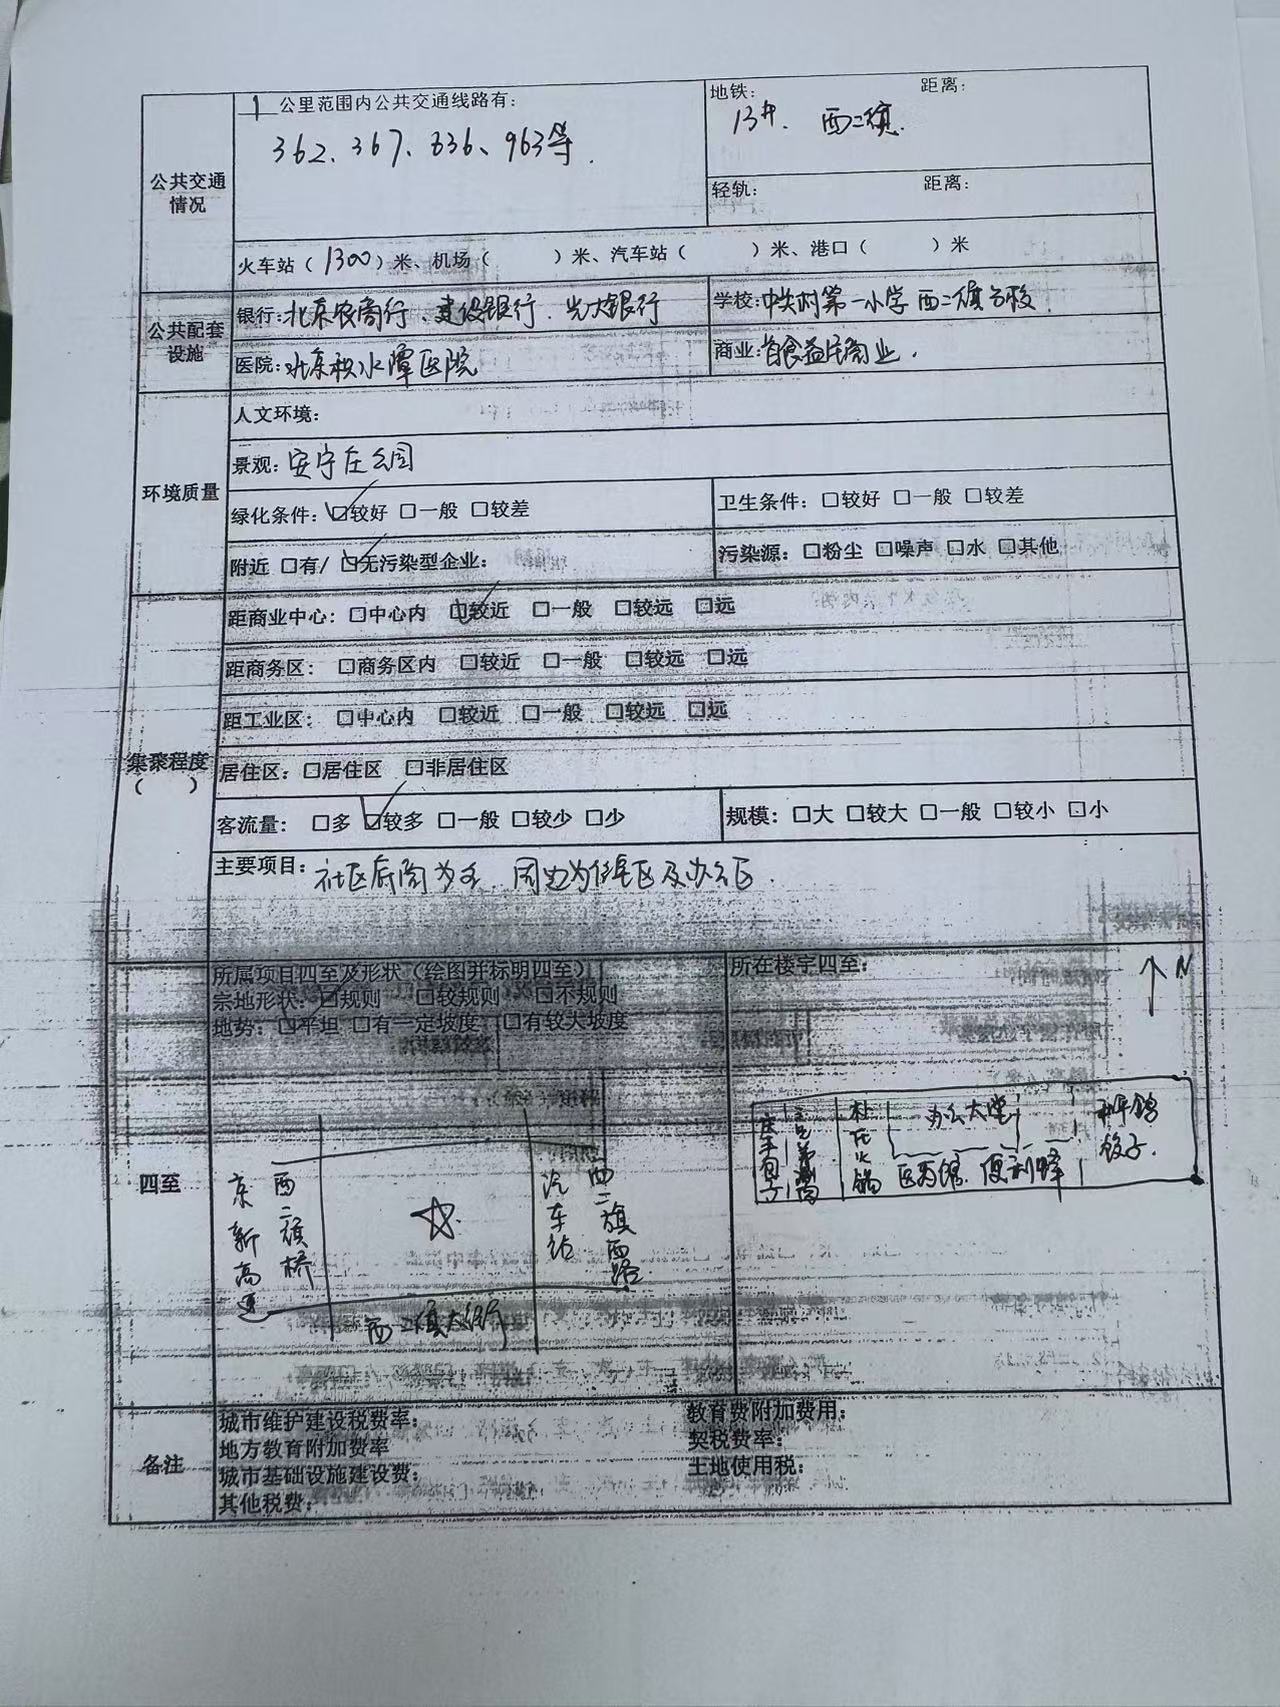 公共交通情况
1 公里范围内公共交通线路有:
362、367、636、963等.
地铁: 距离:
13#. 西二旗.
轻轨: 距离:
火车站（1300）米、机场（ ）米、汽车站（ ）米、港口（ ）米
公共配套设施
银行:北京农商行、建设银行.光大银行
学校:中关村第一小学西二旗分校.
医院:北京积水潭医院
商业:首食益民商业.
环境质量
人文环境:
景观:安宁庄公园
绿化条件:☑较好 □一般 □较差
卫生条件:□较好 □一般 □较差
附近 □有/ ☑无污染型企业:
污染源:□粉尘 □噪声 □水 □其他
集聚程度
（ ）
距商业中心:□中心内 ☑较近 □一般 □较远 □远
距商务区: □商务区内 □较近 □一般 □较远 □远
距工业区: □中心内 □较近 □一般 □较远 □远
居住区:□居住区 □非居住区
客流量: □多 ☑较多 □一般 □较少 □少
规模:□大 □较大 □一般 □较小 □小
主要项目:社区底商为主.周边为住宅区及办公区.
四至
所属项目四至及形状（绘图并标明四至）
宗地形状:☑规则 □较规则 □不规则
地势:☑平坦 □有一定坡度 □有较大坡度
京新高速
西二旗桥
汽车站
西二旗西路
西二旗大街
所在楼宇四至:
N
庆丰包子
杜氏火锅
办公大堂
便利蜂
饺子.
备注
城市维护建设税费率:
教育费附加费用:
地方教育附加费率
契税费率:
城市基础设施建设费:
土地使用税:
其他税费: